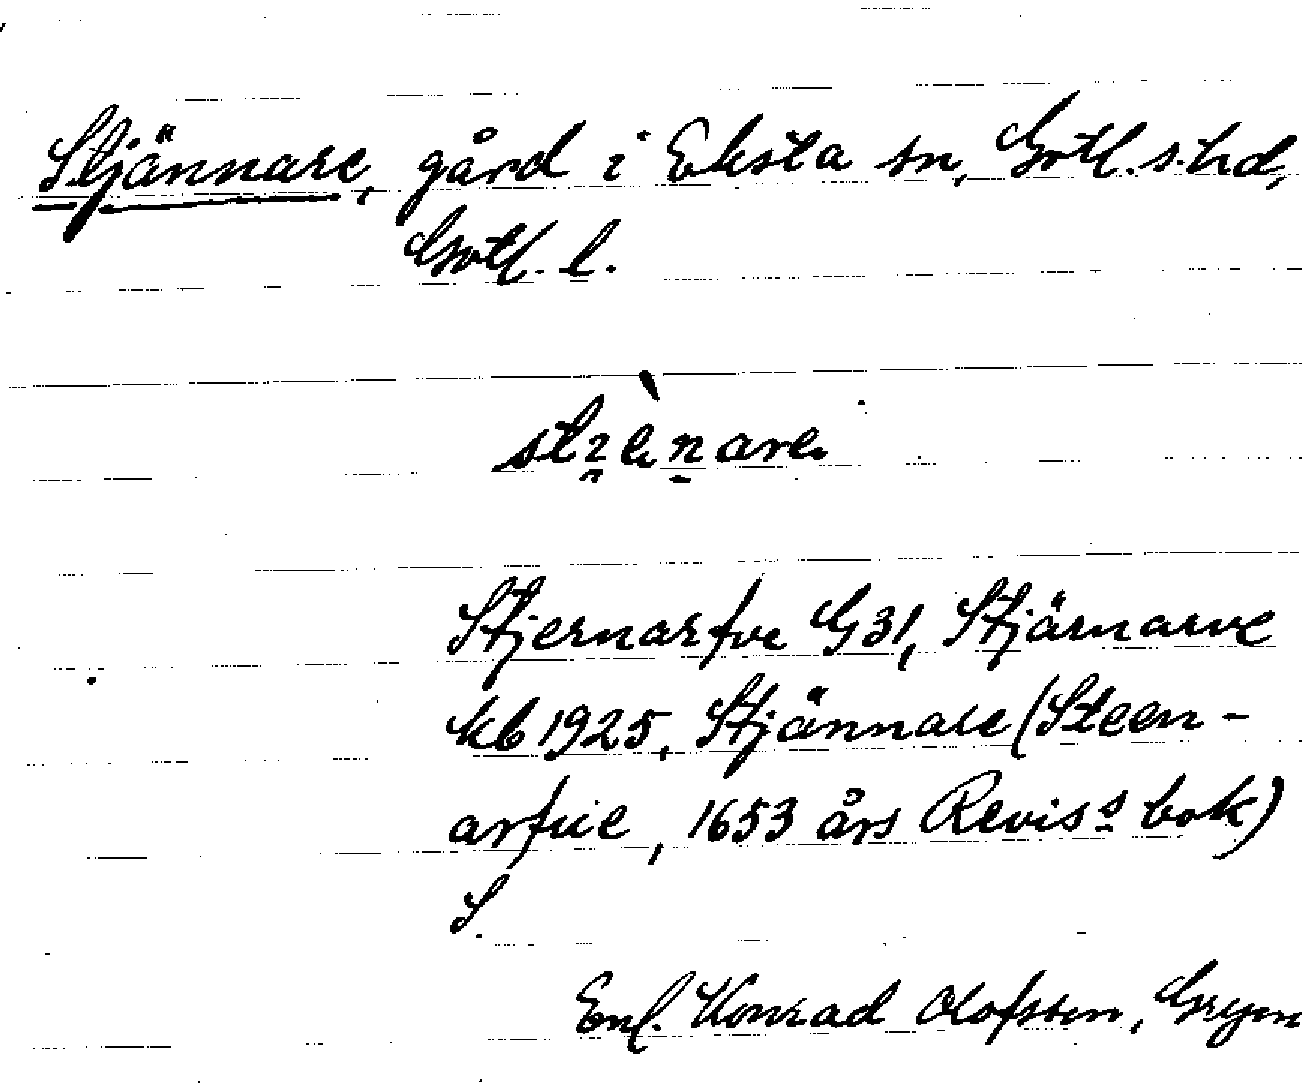 Stjännare, gård i Eksta sn, Gotl. s. hd,
Gotl. l.
Stjernarfve G 31, Stjärnarve
kb 1925, Stjännare (Steen-
arfue, 1653 års Revis:s bok)
S.
Enl. Konrad Olofsson, Grym